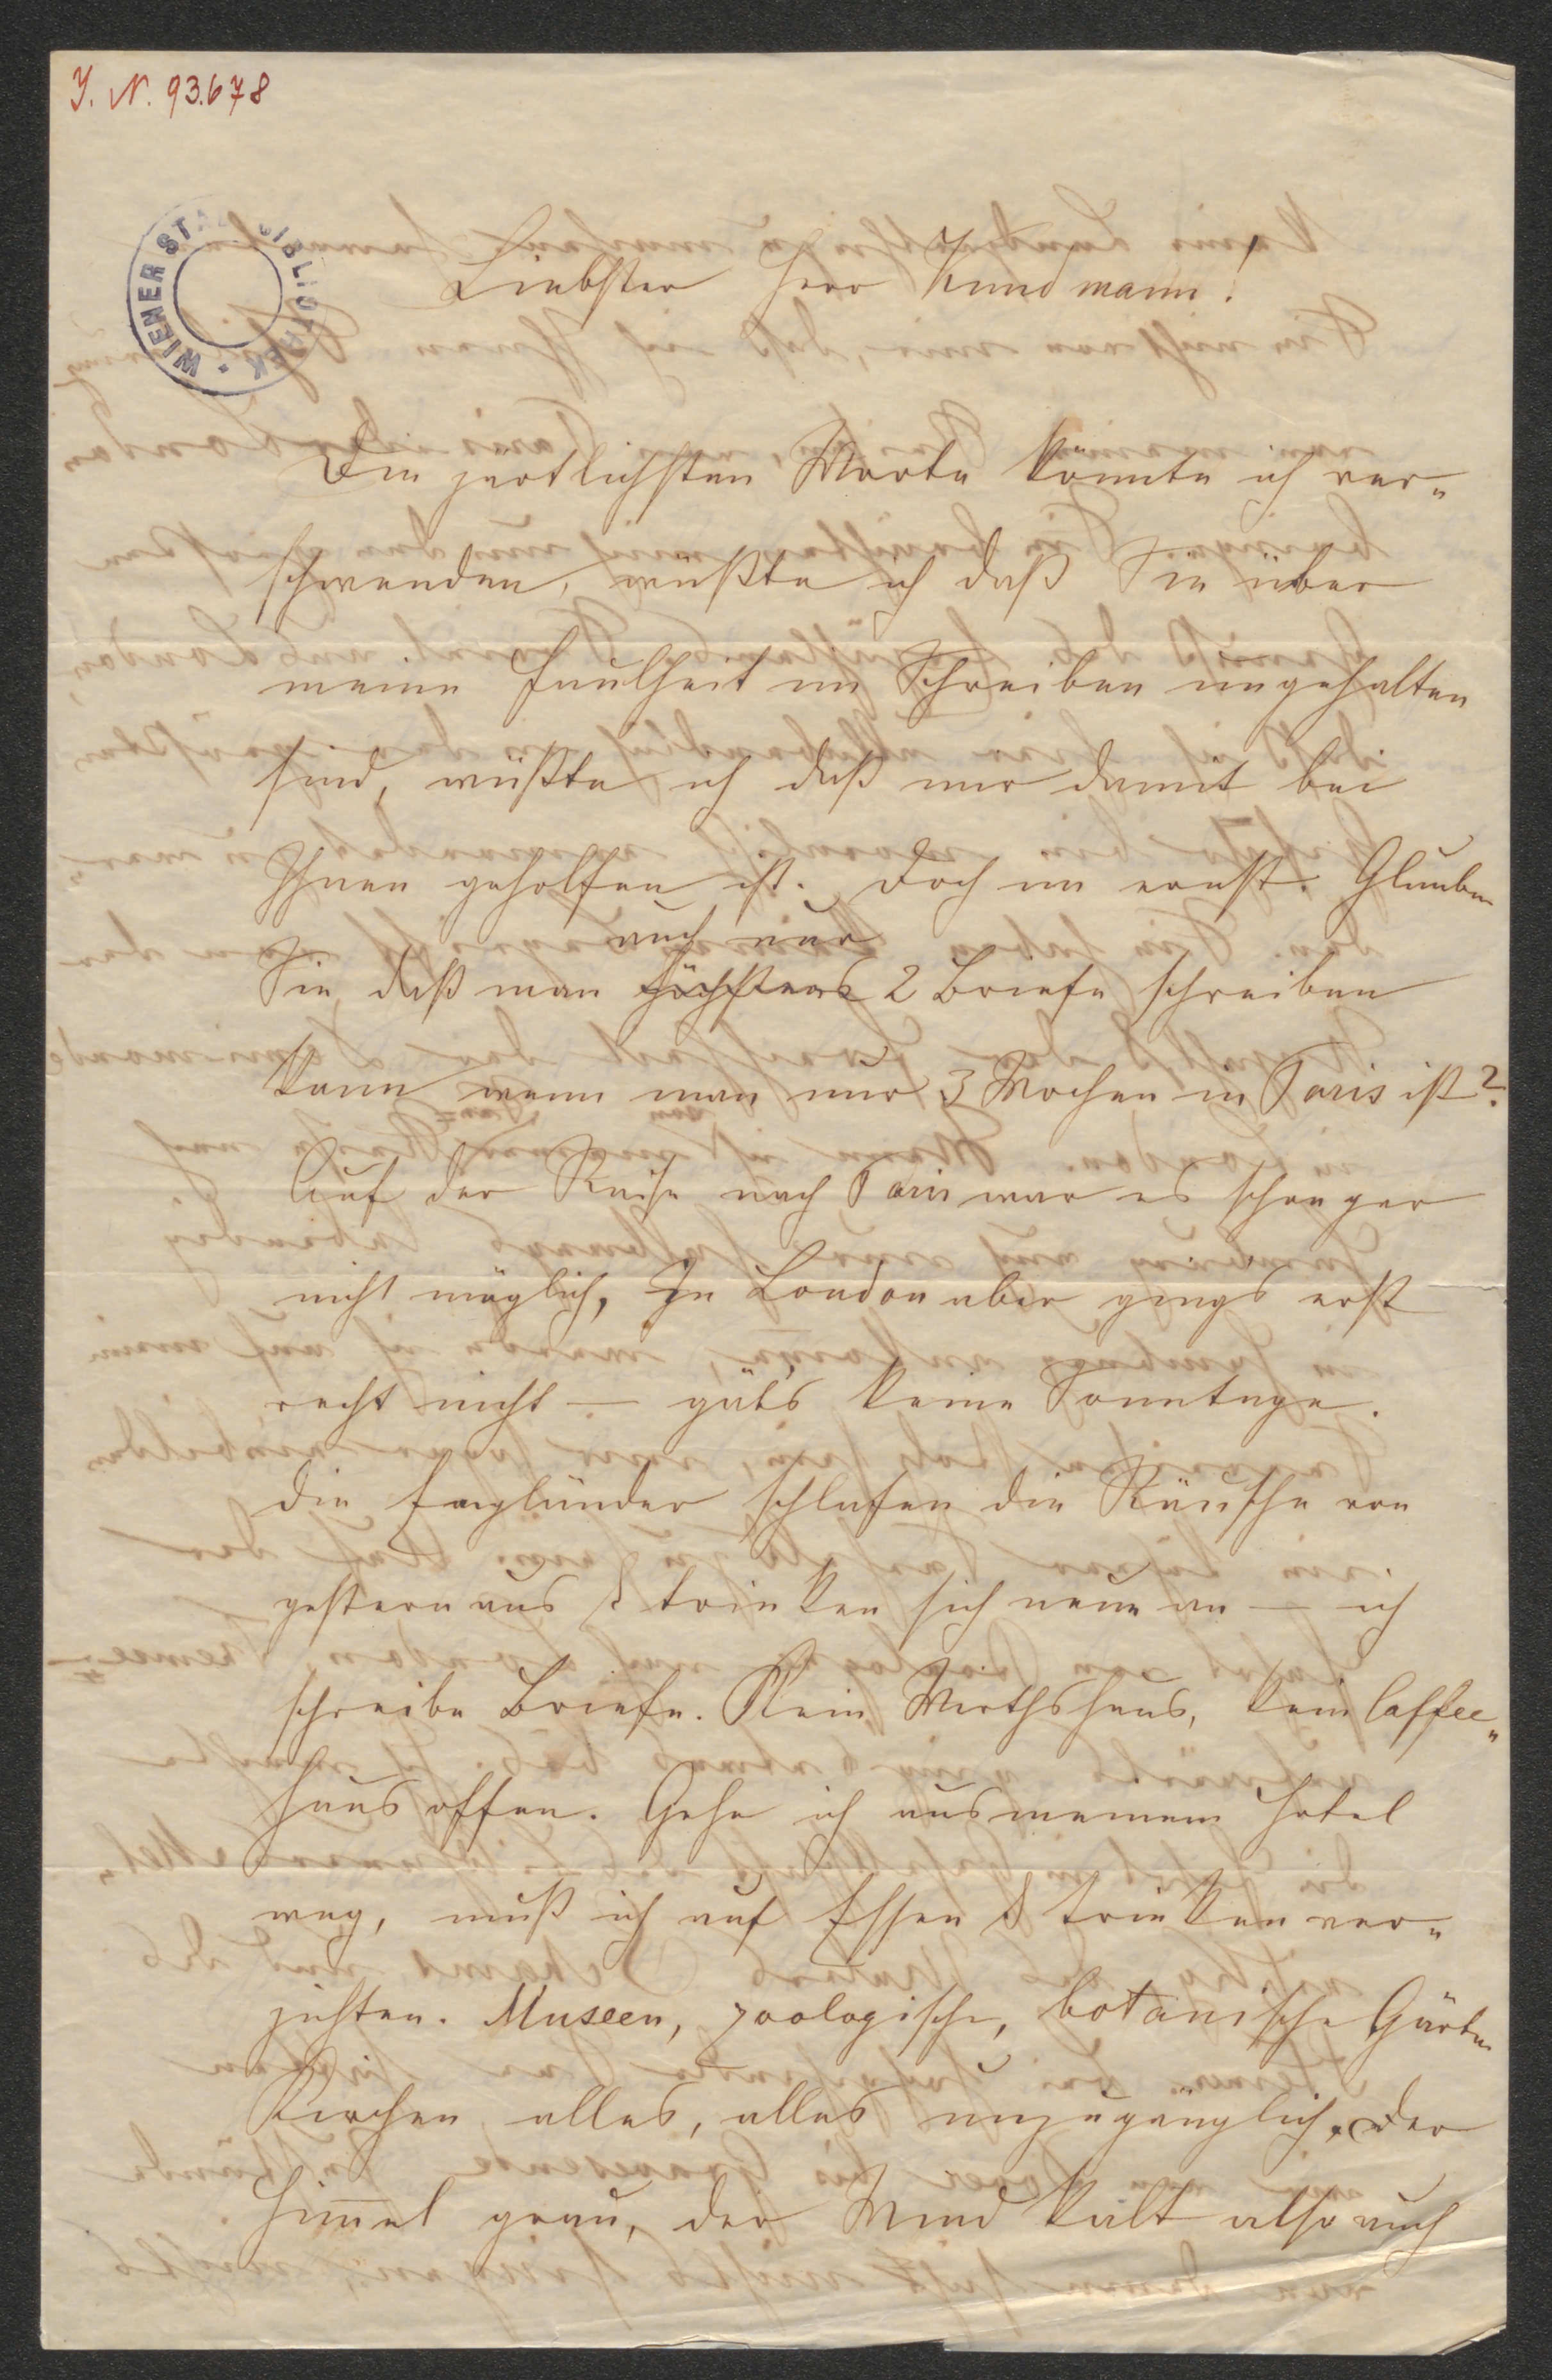 J. N. 93.678
WIENER STADTBIBLIOTHEK
Liebster Herr Kundmann!
Die zertlichsten Worte könnte ich ver„
schwenden, wüßte ich daß Sie über
meine Faulheit im Schreiben ungehalten
sind, wüßte ich daß nur damit bei
Ihnen geholfen ist. Doch im ernst. Glauben
auch nur
Sie daß man höchstens 2 Briefe schreiben
kann wenn man nur 3 Wochen in Paris ist?
Auf der Reise nach Paris war es schon gar
nicht möglich, In London aber gings erst
recht nicht — gäbs keine Sonntage.
Die Engländer schlafen die Räusche von
gestern aus & trinken sich neue an — ich
schreibe Briefe. Kein Wirthshaus, kein Caffee„
haus offen. Gehe ich aus meinem Hotel
weg, muß ich auf Essen & trinken ver„
zichten. Museen, zoologische, botanische Gärten
Kirchen alles, alles unzugänglich. Der
Himmel grau, der Wind kalt also auch